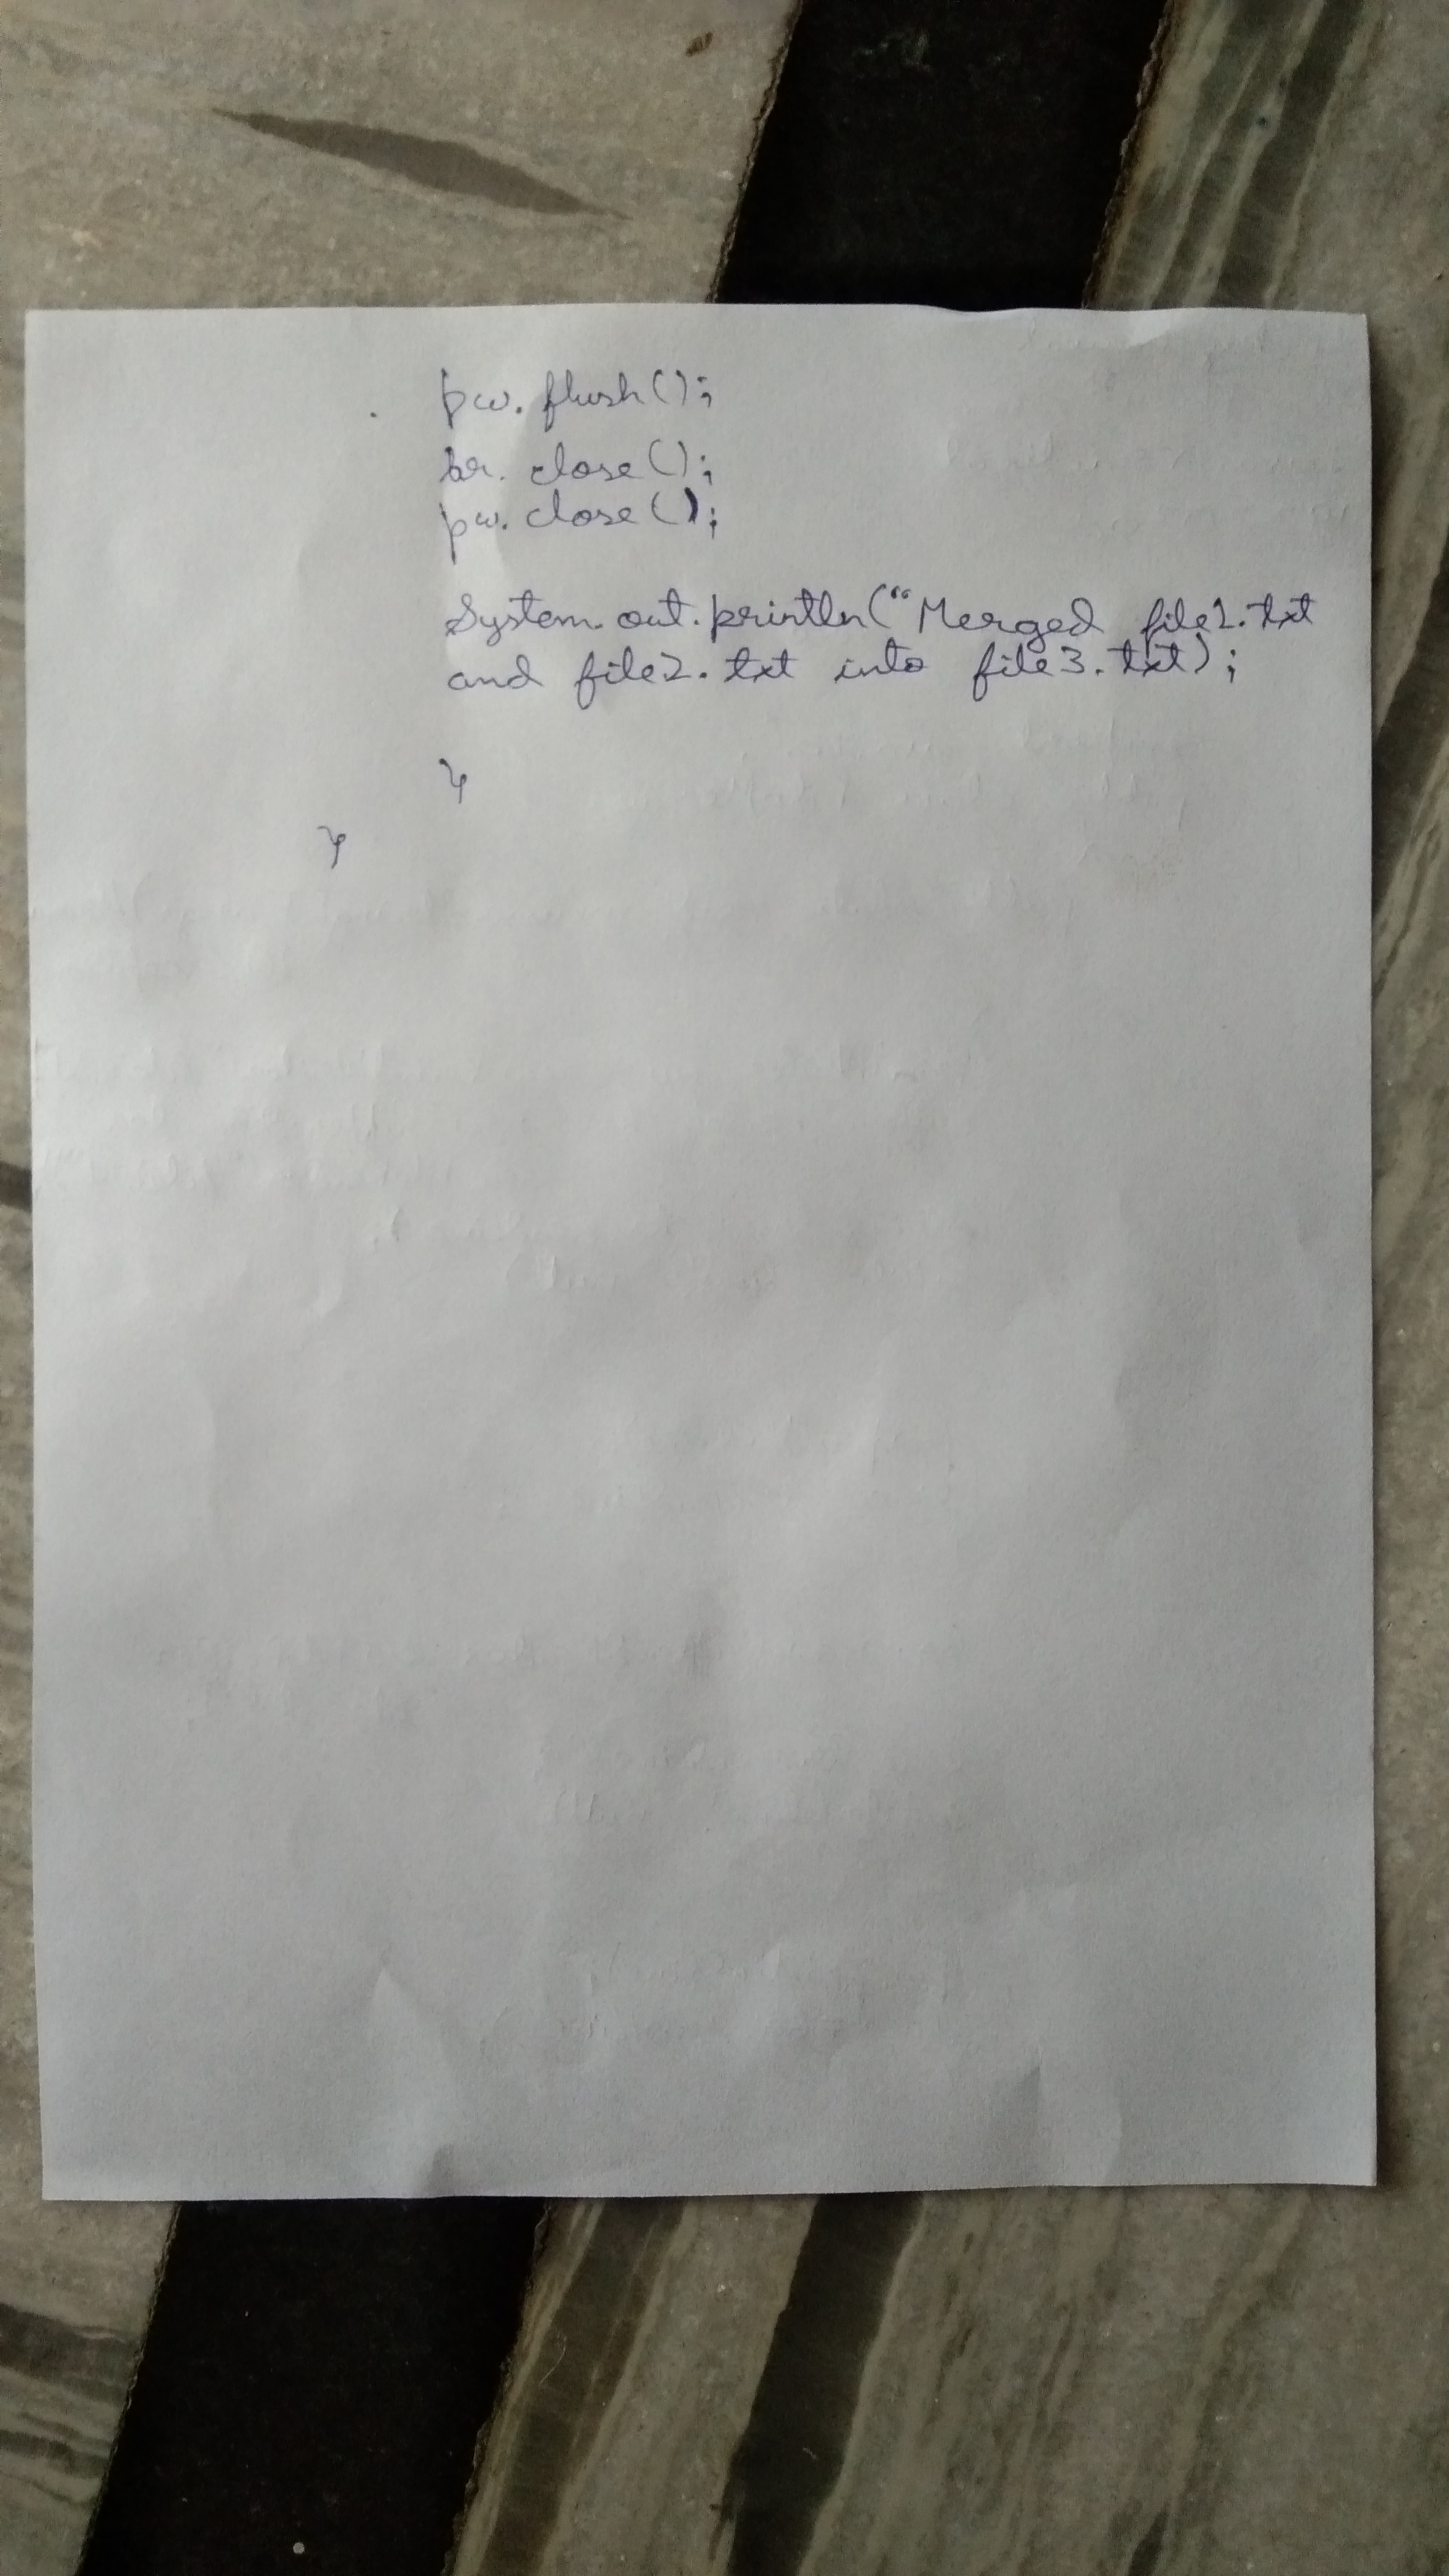 pw. flush();
br. close();
pw. close();
System.out.println("Merged file1.txt
and file2.txt into file3.txt);
}
}